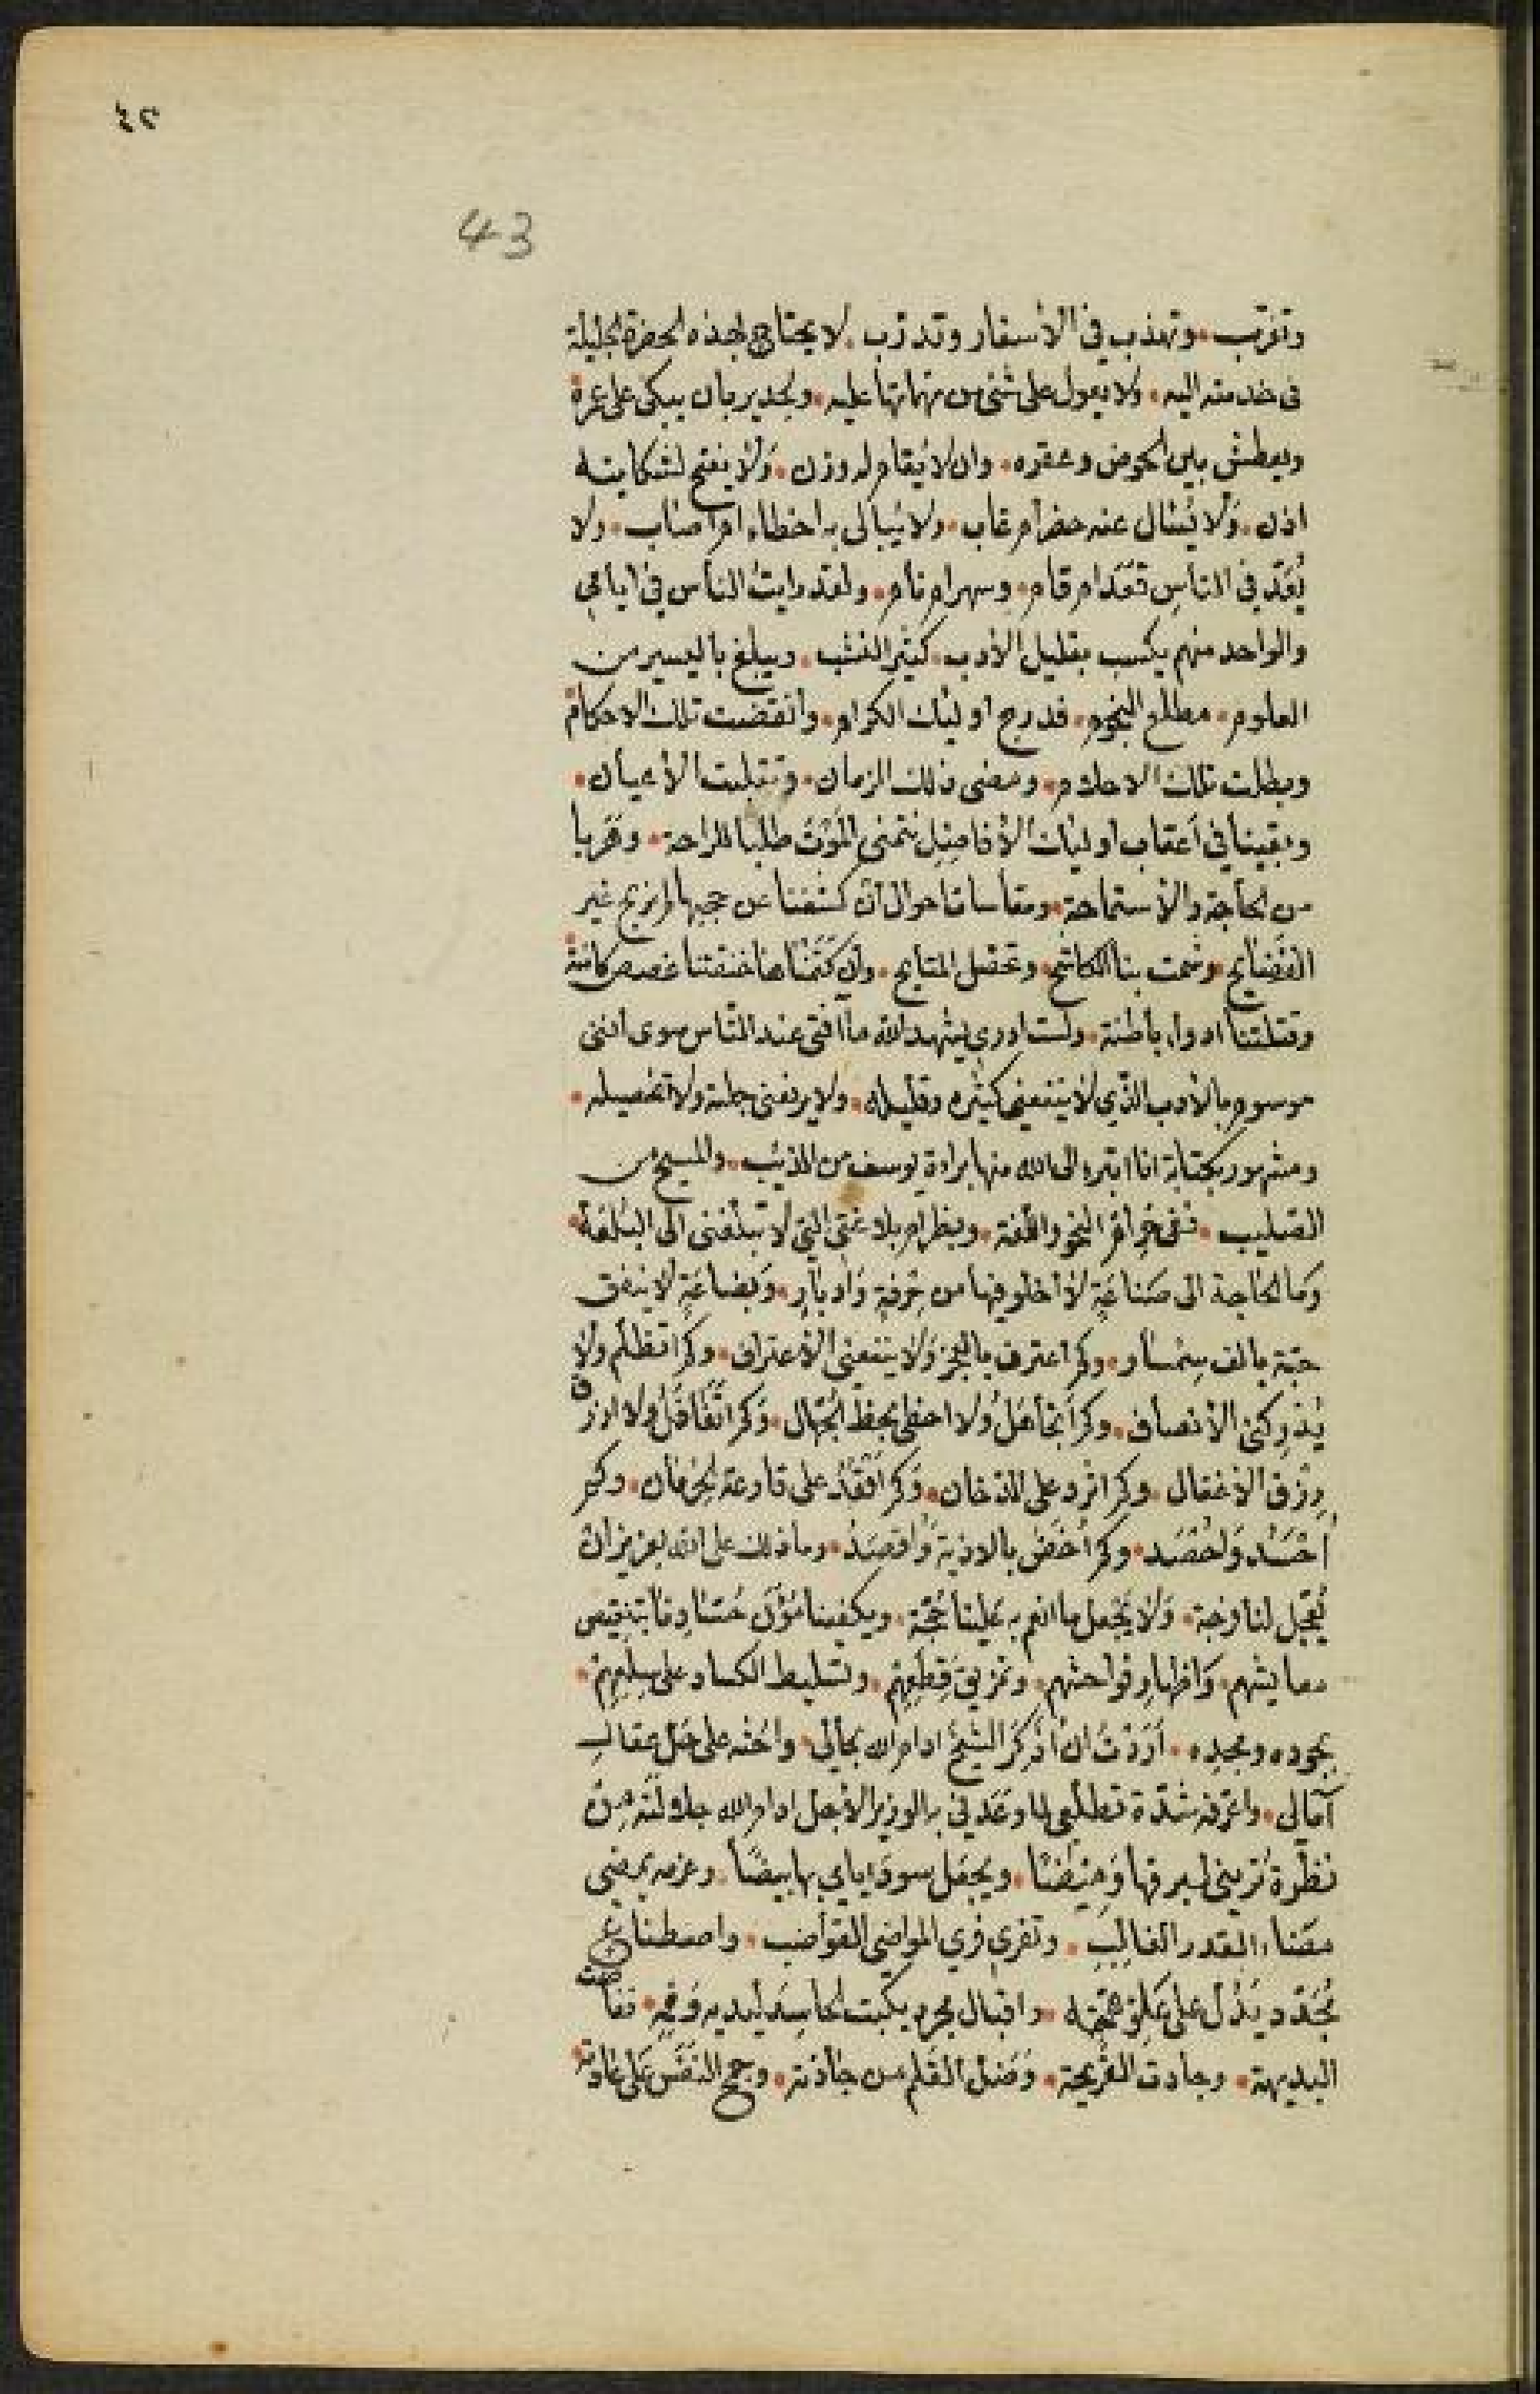 ٤٢
43
وتغرب. وتهذب في الأسفار وتدرب. لا يحتاج لهذه الحضرة الجليلة
فى خدمته اليه. ولا يعول على شئ من مهماتها عليه. ولجدير بان يبكى على عزة
ويعطش بين الحوض وعقره. وان لا يقام له وزن. ولا يفتح لشكايته
اذن. ولا يسال عنه حضر ام غاب. ولا يبالى به اخطاء ام اصاب. ولا
يعد في الناس قعد ام قام. وسهر ام نام. ولقد رايت الناس في ايامي
والواحد منهم يكسب بقليل الأدب. كثير النشب. ويبلغ باليسير من
العلوم. مطلع النجوم. فدرج اوليك الكرام. وانقضت تلك الاحكام
وبطلت تلك الاحلام. ومضى ذلك الزمان. وتقلبت الأعيان.
وبقينا في أعقاب اوليك الأفاضل نتمنى الموت طلبا للراحة. وهربا
من الحاجة والأستماحة. ومقاسات احوال ان كشفنا عن حجبها لم نربح غير
الفضايح. وشمت بنا الكاشح. وان كتمناها خنقتنا غصص كامنة
وقتلتنا ادواء باطنة. ولست ادري يشهد الله ما آفتى عند الناس سوى اننى
موسوم بالأدب الذي لا ينفعنى كثيره وقليله. ولا يرفعنى جملته ولا تفصيله.
ومشهور بكتابة انا ابتره الى الله منها براءة يوسف من الذيب. والمسيح من
الصليب. النحو واللغة. بلاغتى التي لا تبلغنى الى البلغة.
وما الحاجة الى صناعة لا اخلو فيها من حرفة وادبار. وبضاعة لا ينفق
حبة بالف سمسار. وكم اعترف بالعجز ولا ينفعنى الأعتراف. وكم اتظلم ولا
يدركنى الأنصاف. وكم أتجاهل ولا احظى بحظ الجهال. وكم اتغافل ولا ارزق
رزق الأغفال. وكم اثرد على الدخان. وكم اقعد على قارعة الحرمان. وكم
أحسد واحصد. وكم أخص بالاذية واقصد. وما ذلك على الله بعزيز ان
يعجل لنا فرجة. ولا يجعل ما انعم به علينا حجة. ويكفينا مؤن حسادنا بتنقيص
معايشهم. واظهار فواحشهم. وتمزيق قطعهم. وتسليط الكساد على سلعهم.
بجوده ومجده. أردت ان أذكر الشيخ ادام الله بحالي. واحثه على حل عقال
آمالى. واعرفه شدة تطلعى لما وعدني به الوزير الأجل ادام الله جلالته من
نظرة تريني لبرقها وميضا. ويجعل سود ايامي بها بيضا. وعزمه يمضى
مضاء القدر الغالب. وتفرى فري المواضي القواضب. واصطناع
مجدد يدل على علو همته. واقبال يكبت الحاسد ليديه وفمه. تفاصت
البديهة. وجادت القريحة. وضل القلم من جادته. وجمح النفس على عادته